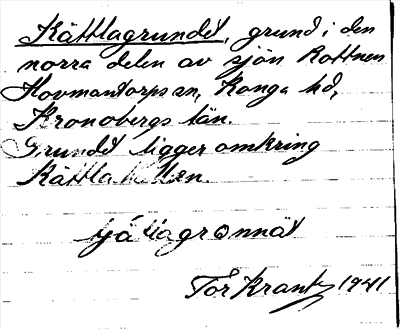 Kättlagrundet, grund i den
norra delen av sjön Rottnen
Hovmantorps sn, Konga hd,
Kronobergs län.
Grundet ligger omkring
Kättla
Tor Krantz 1941